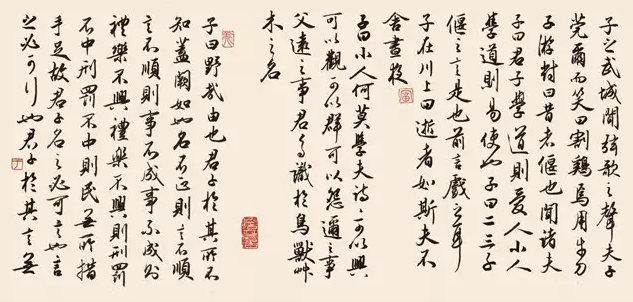 子之武城聞弦歌之聲夫子
莞爾而笑曰割鷄焉用牛刀
子游對曰昔者偃也聞諸夫
子曰君子學道則愛人小人
學道則易使也子曰二三子
偃之言是也前言戲之耳
子在川上曰逝者如斯夫不
舍晝夜
子曰小人何莫學夫詩〻可以興
可以觀可以群可以怨邇之事
父遠之事君多識於鳥獸艸
木之名
子曰野哉由也君子於其所不
知蓋闕如也名不正則言不順
言不順則事不成事不成則
禮樂不興禮樂不興則刑罰
不中刑罰不中則民無所措
手足故君子名之必可言也言
之必可行也君子於其言無